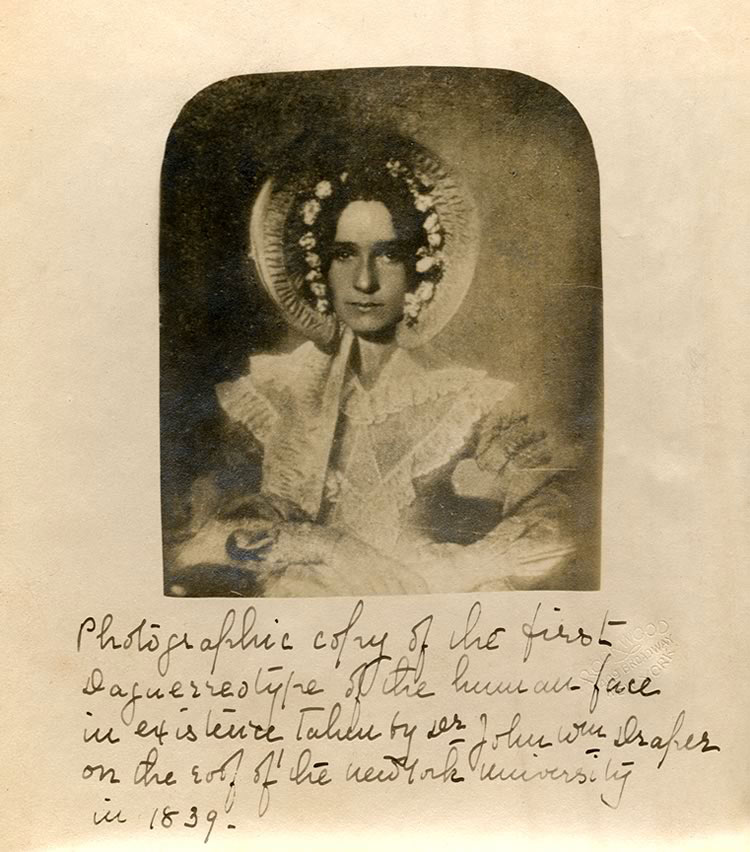 Photographic copy of the first
Daguerreotype of the human face
in existence taken by Dr John Wm Draper
on the roof of the New York University
in 1839.
ROCKWOOD
BROADWAY